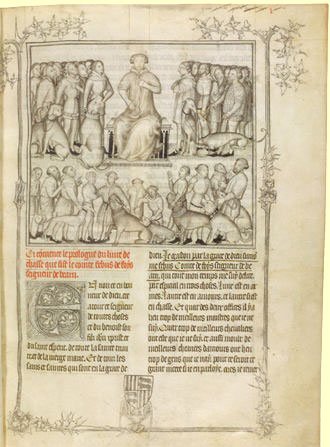 Ci comence le prologue du liure de
chasse que fist le conte febus de foys
seigneur de bearn
En nom et en hon
neur de dieu cre
ateur et seigneur
de toutes choses
et du benoit son
filz ihu crist et
du saint esperit. de toute la sainte trini
tat de la vierge marie. Et de touz les
sains et saintes qui sont en la grace de
dieu. Je gaston par la grace de dieu surno
me febus Conte de foys seigneur de be
arn. qui tout mon temps me suy delite
par especial en trois choses. lune est en ar
mes. lautre est en amours. et lautre si est
en chasse. Et quar des deux offices il y a
heu trop de meilleurs maistres que je ne
suy. Quar trop de meilleurs chevaliers
ont este que je ne suy. et aussi moult de
meilleurs cheances damours ont heu
trop de gens que je nay. pour ce seroit
grant nicete si je en parloye. mes je remet